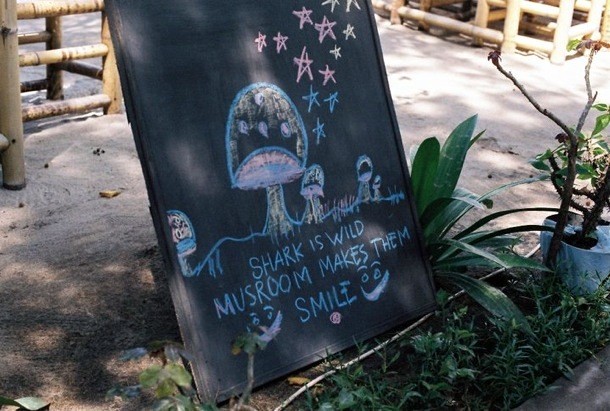 SHARK IS WILD
MUSROOM MAKES THEM
SMILE